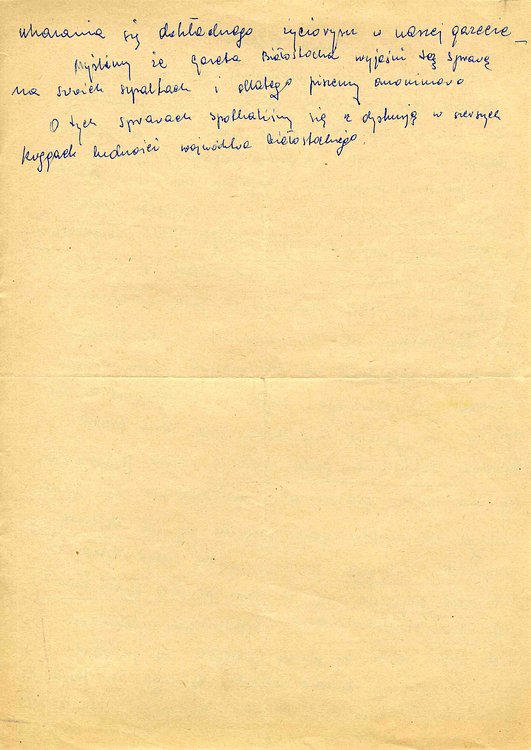 ukazania się dokładnego życiorysu w naszej gazecie_
Myślimy że Gazeta Białostocka wyjaśni tą sprawę
na swoich szpaltach i dlatego piszemy anonimowo
O tych sprawach spotkaliśmy się z dyskusją w szerszych
kręgach ludności województwa białostockiego.